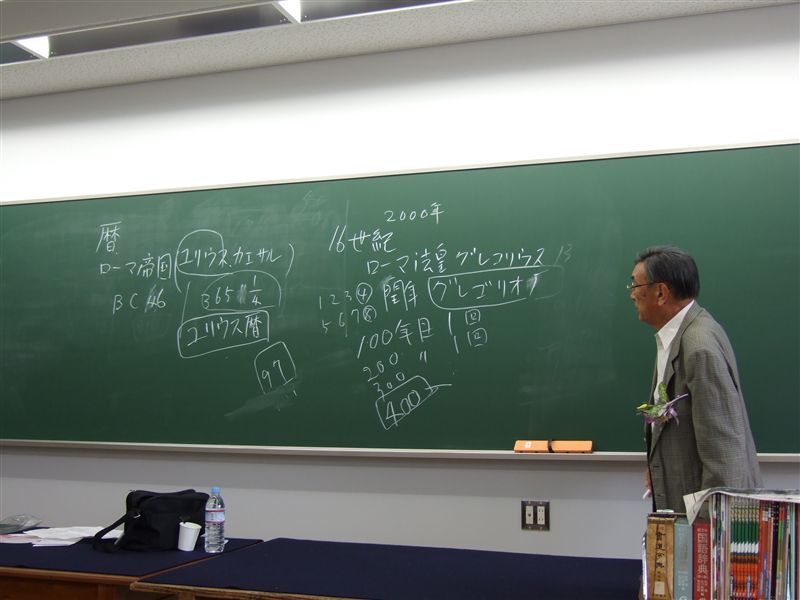 暦
ローマ帝国(ユリウス.カエサル)
BC 46
365 1/4
ユリウス暦
97
2000年
16世紀
ローマ法皇 グレゴリウス 13
1 2 3 4 閏年 グレゴリオ
5 6 7 8
100年目 1回
200 〃 1回
300
400
国語辞典